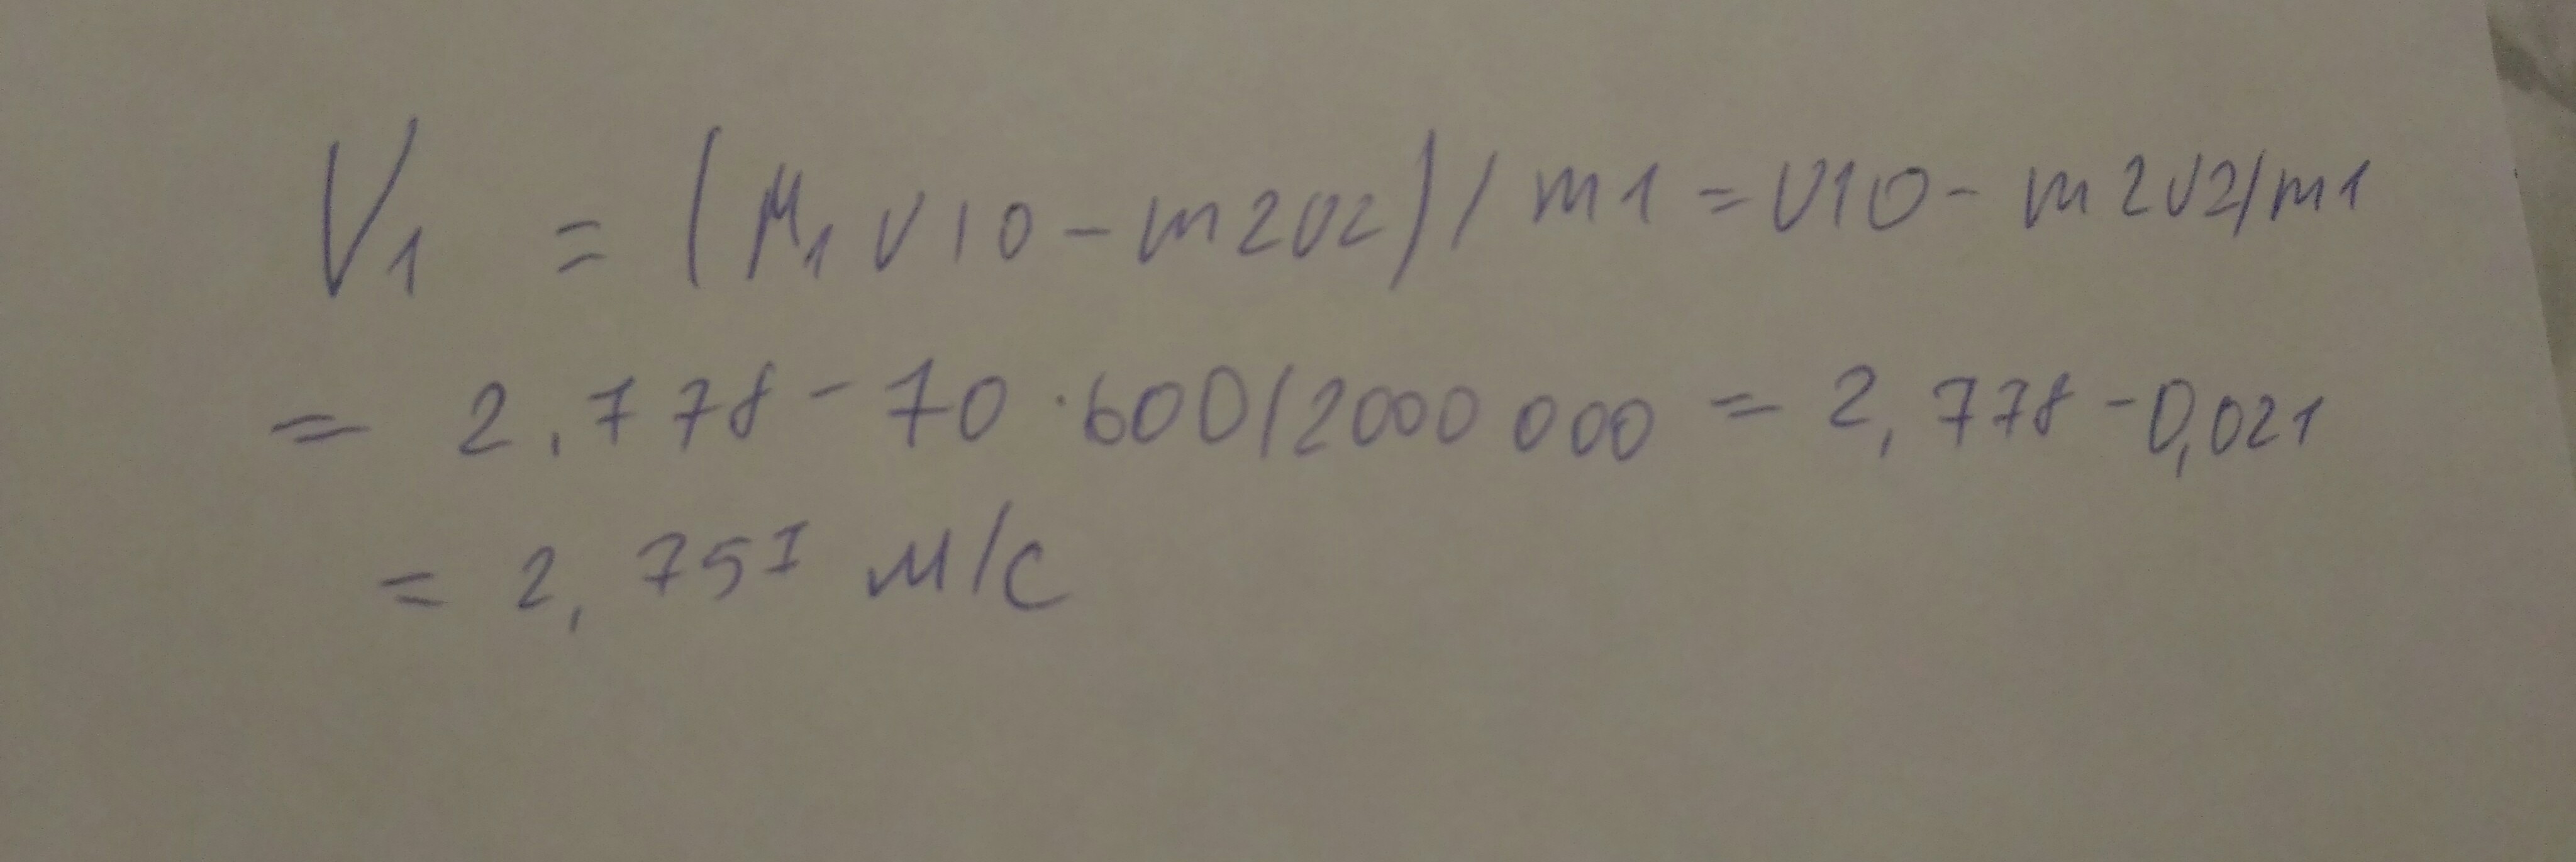 V₁ = (М₁ v10 - m2v2) / m1 = v10 - m2v2/m1
= 2,778 - 70 · 600/2000 000 = 2,778 - 0,021
= 2,757 м/с